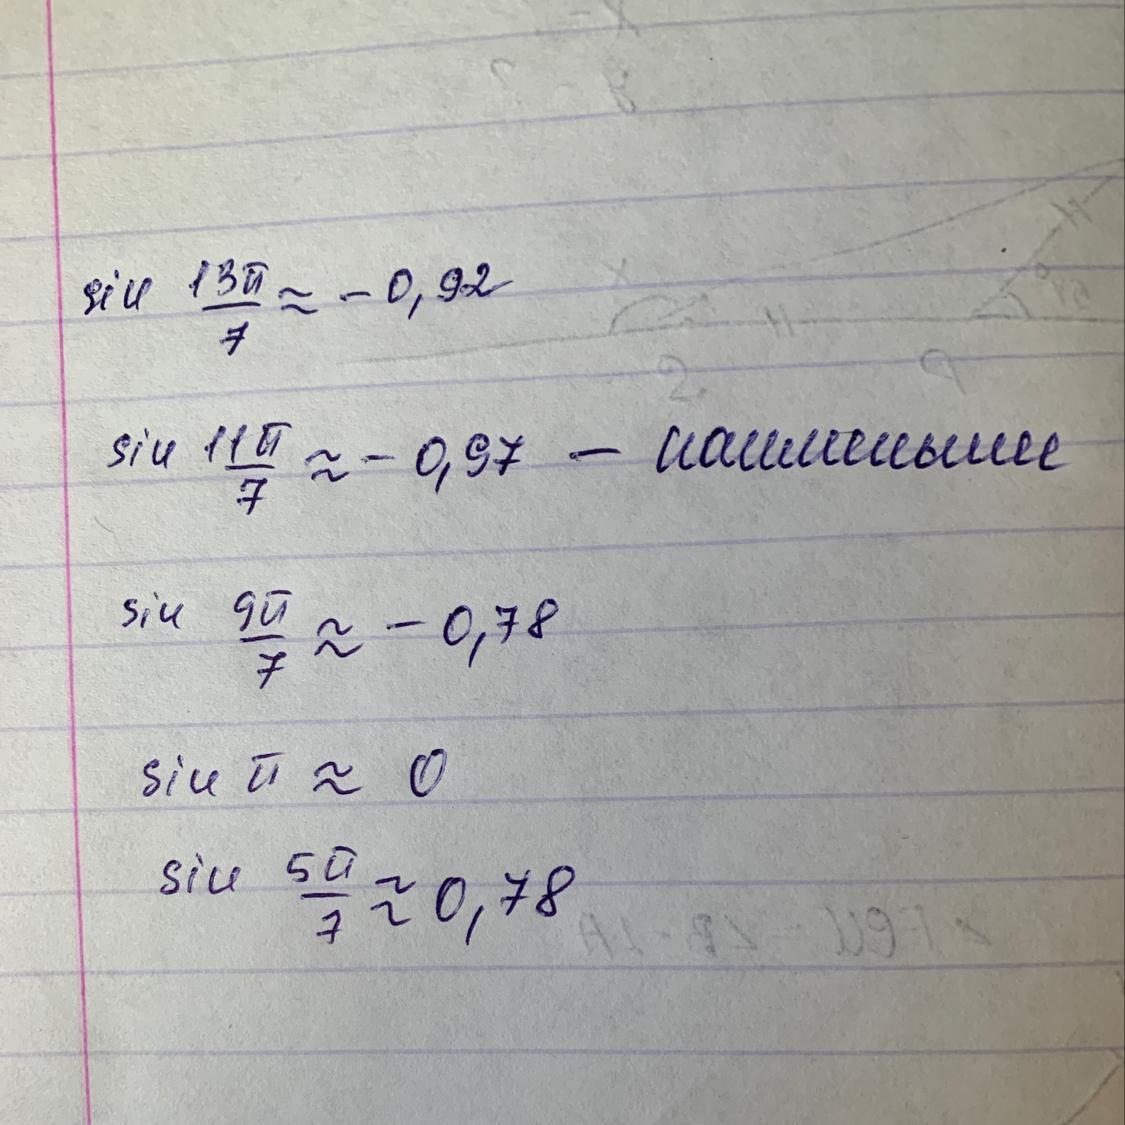 sin 13π/7 ≈ -0,92
sin 11π/7 ≈ -0,97 — наименьшее
sin 9π/7 ≈ -0,78
sin π ≈ 0
sin 5π/7 ≈ 0,78